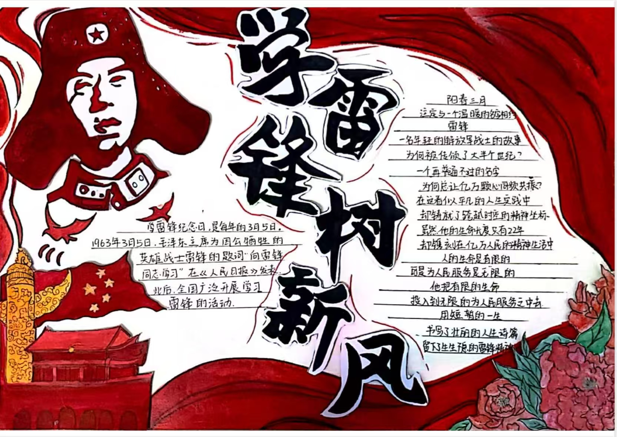 学雷锋树新风
学雷锋纪念日,是每年的3月5日,
1963年3月5日,毛泽东主席为因公牺牲的
英雄战士雷锋的题词“向雷锋
同志学习”在《人民日报》发表
此后,全国广泛开展学习
雷锋的活动
阳春三月
注定与一个温暖的名字相伴
雷锋
一名年轻的解放军战士的故事
为何被传颂了大半个世纪?
一个再普通不过的名字
为何总让亿万颗心
在这看似平凡的人生实践中
却铸就了跨越时空的精神坐标
虽然他的生命长度只有22年
却镌刻在亿万人民的精神生活中
人的生命是有限的
可是为人民服务是无限的
他把有限的生命
投入到无限的为人民服务之中去
用短暂的一生
书写了壮丽的人生诗篇
留下生生不息的雷锋精神